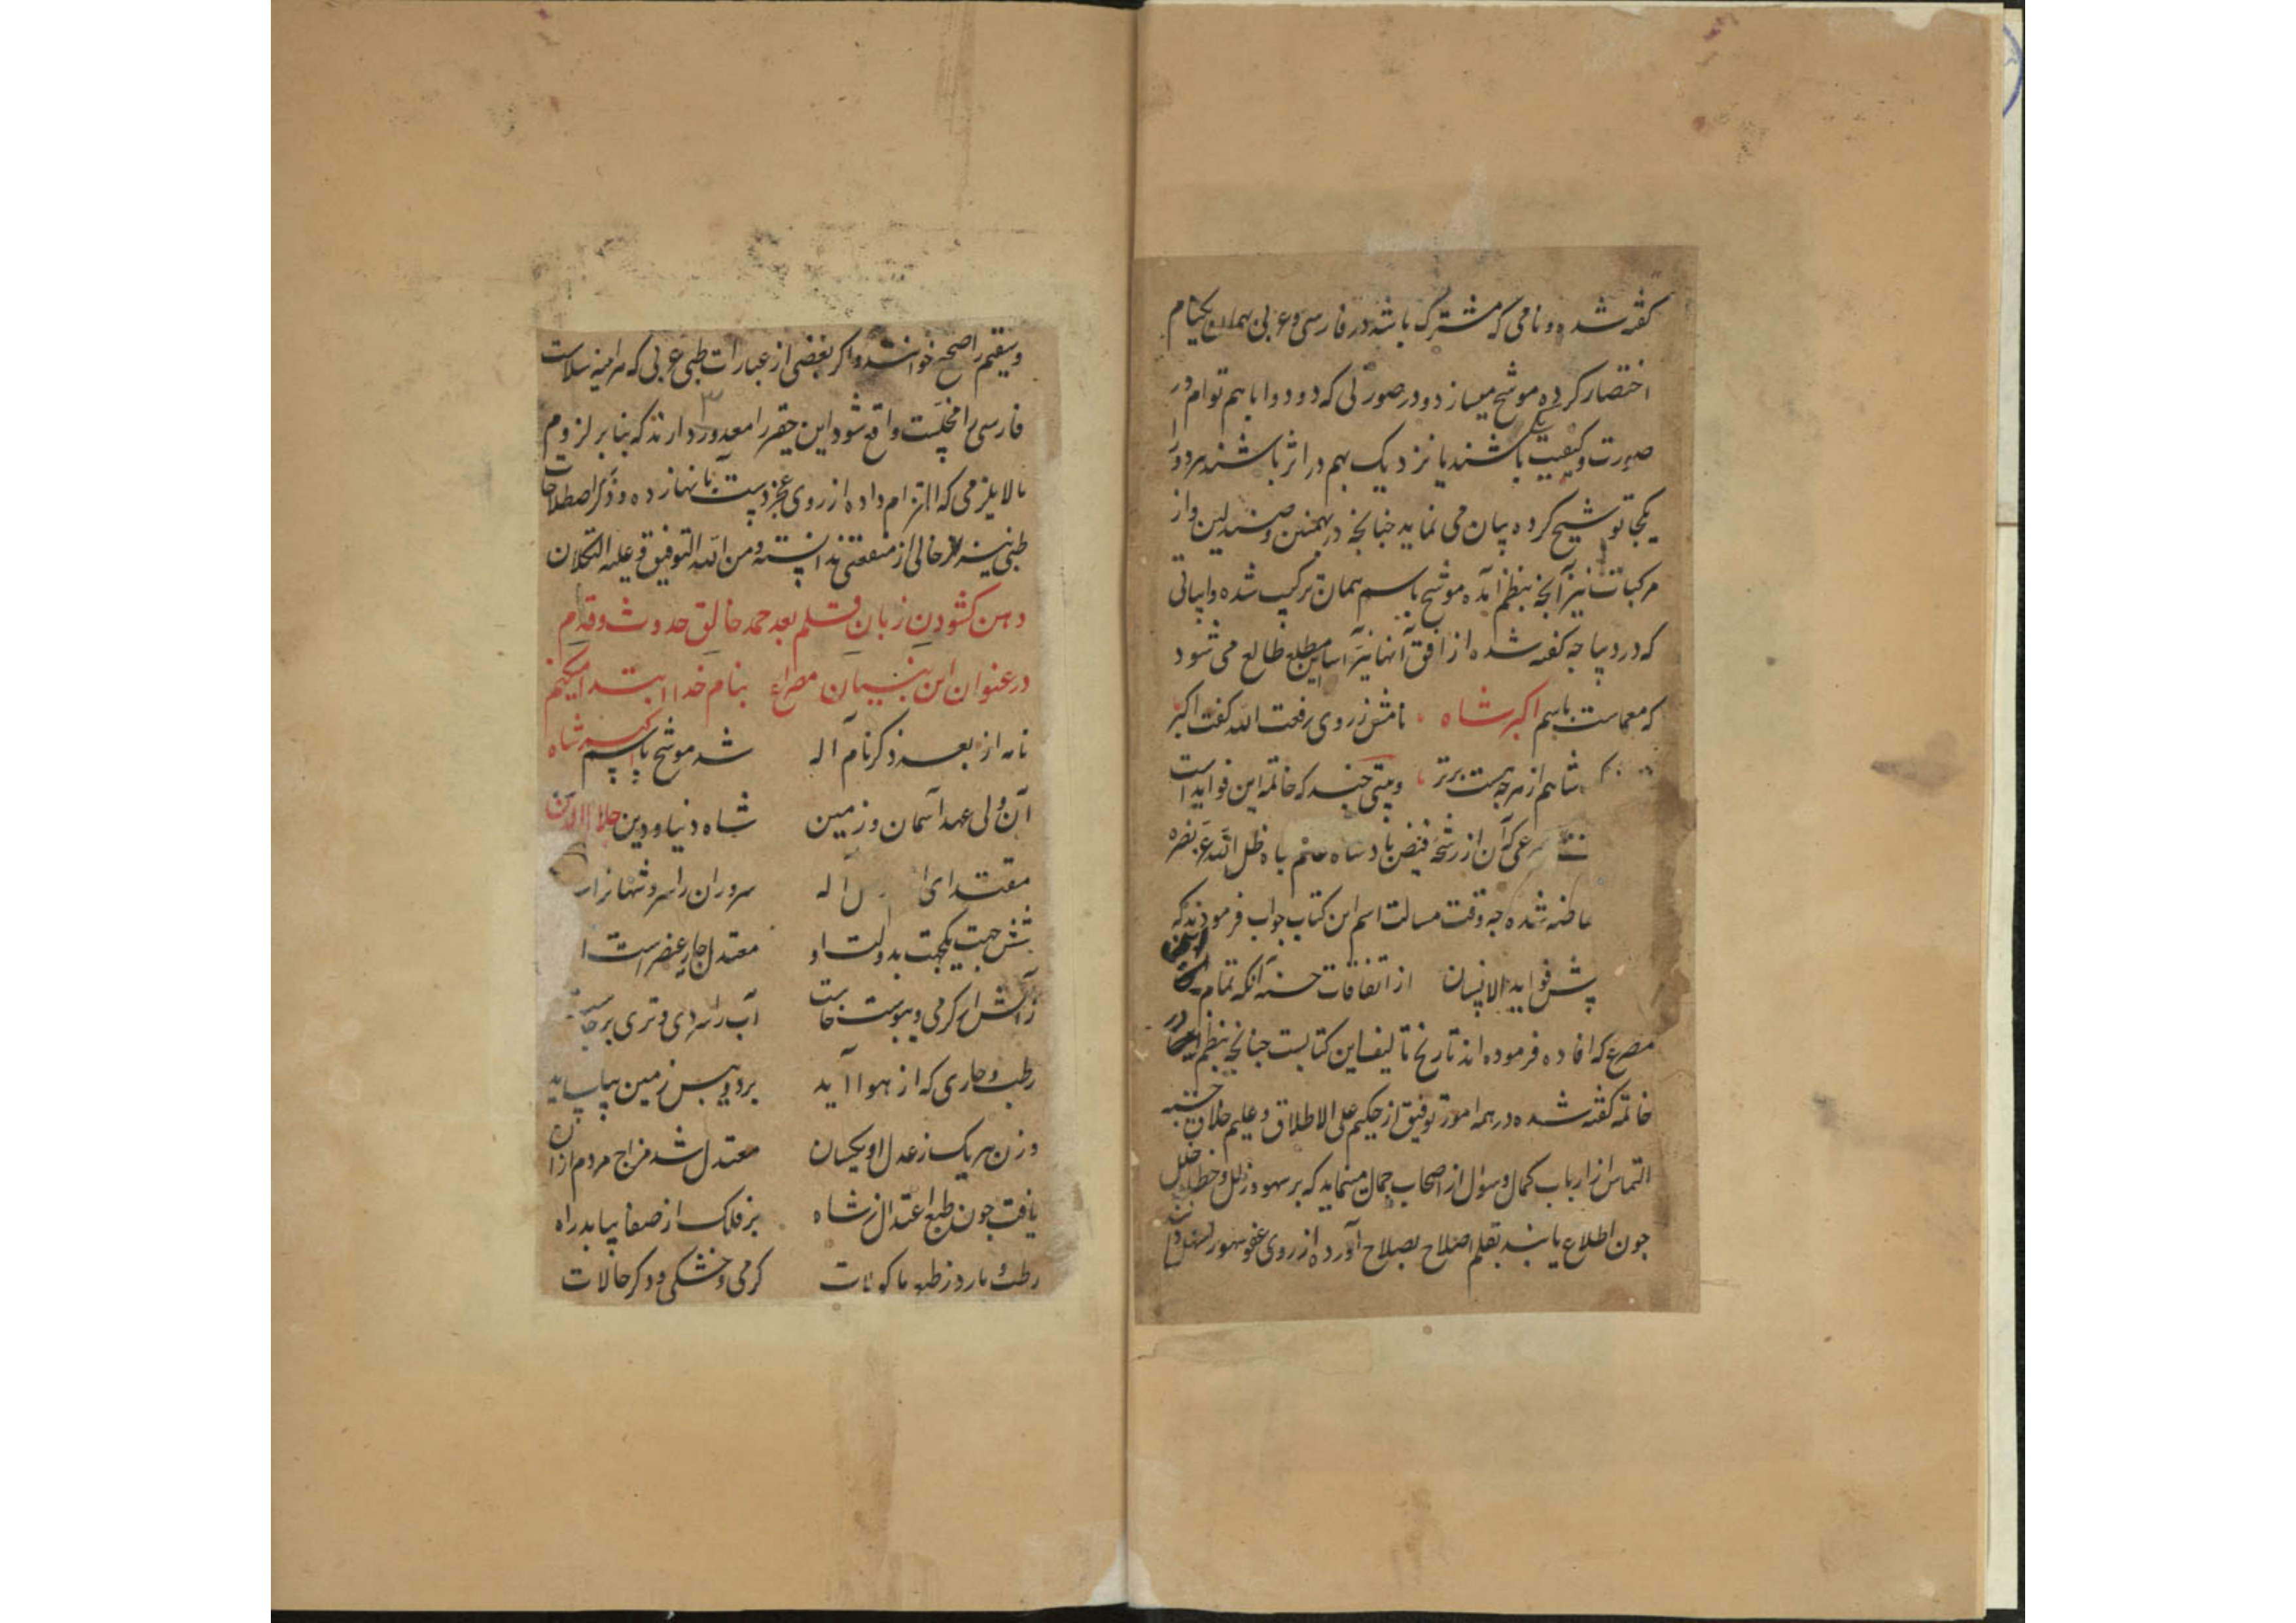 گفته شده و نامی که مشترک باشد در فارسی و عربی بهمان یکنام
اختصار کرده موشح میسازد و در صورتی که دو دوا با هم توام در
صورت و کیفیت باشند یا نزدیک بهم در اثر باشند هردو را
یکجا توشیح کرده بیان می نماید چنانچه در بهمنین و صندلین و از
مرکبات نیز آنچه بنظم آمده موشح باسم همان ترکیب شده و ابیاتی
که در دیباچه گفته شده از افق آنها نیز این مطلع طالع می شود
که معماست باسم اکبر شاه نامش ز روی رفعت الله گفت اکبر
شاهم از هرچه هست برتر و بیتی چند که خاتمه این فواید است
که آن از رشحه فیض بادشاه ظل الله عز نصره
شده چه وقت مسالت اسم این کتاب جواب فرمودند که
فواید الانسان از اتفاقات حسنه آنکه تمام این
مصرع که افاده فرموده اند تاریخ تالیف این کتابست چنانچه بنظم در
خاتمه گفته شده در همه امور توفیق از حکیم علی الاطلاق و علیم خلاق
التماس از ارباب کمال و سوال از اصحاب جمال مینماید که بر سهو و زلل و خطا و خلل
چون اطلاع یابند بقلم اصلاح بصلاح آورده از روی عفو
و سقیم را صحیح خوانند و اگر بعضی از عبارات طبی عربی که
فارسی را مخلست واقع شود این حقیر را معذور دارند که بنا بر لزوم
ما لا یلزمی که التزام داده از روی عجز دست بآنها زده و ذکر اصطلاحات
طبی نیز خالی از منفعتی ندانسته و من الله التوفیق و علیه التکلان
دهن کشودن زبان قلم بعد حمد خالق حدوث و قدم
در عنوان این بنیان مصراع بنام خدا ابتدا میکنم
نامه از بعد ذکر نام آله شد موشح باسم اکبر شاه
آن ولی عهد آسمان و زمین شاه دنیا و دین جلال الدین
مقتدای اله سروران را سر و شهانرا
شش جهت یکجهت بدولت او معتدل چار عنصر است
ز آتش ار گرمی و یبوست خاست آب را سردی و تری برجاست
رطب و حاری که از هوا آید برد و یبس زمین بیاساید
وزن هر یک ز عدل او یکسان معتدل شد مزاج مردم از آن
یافت چون طبع اعتدال ز شاه بر فلک از صفا بیابد راه
رطب و بارد ز طبع ماکولات گرمی و خشکی و دگر حالات